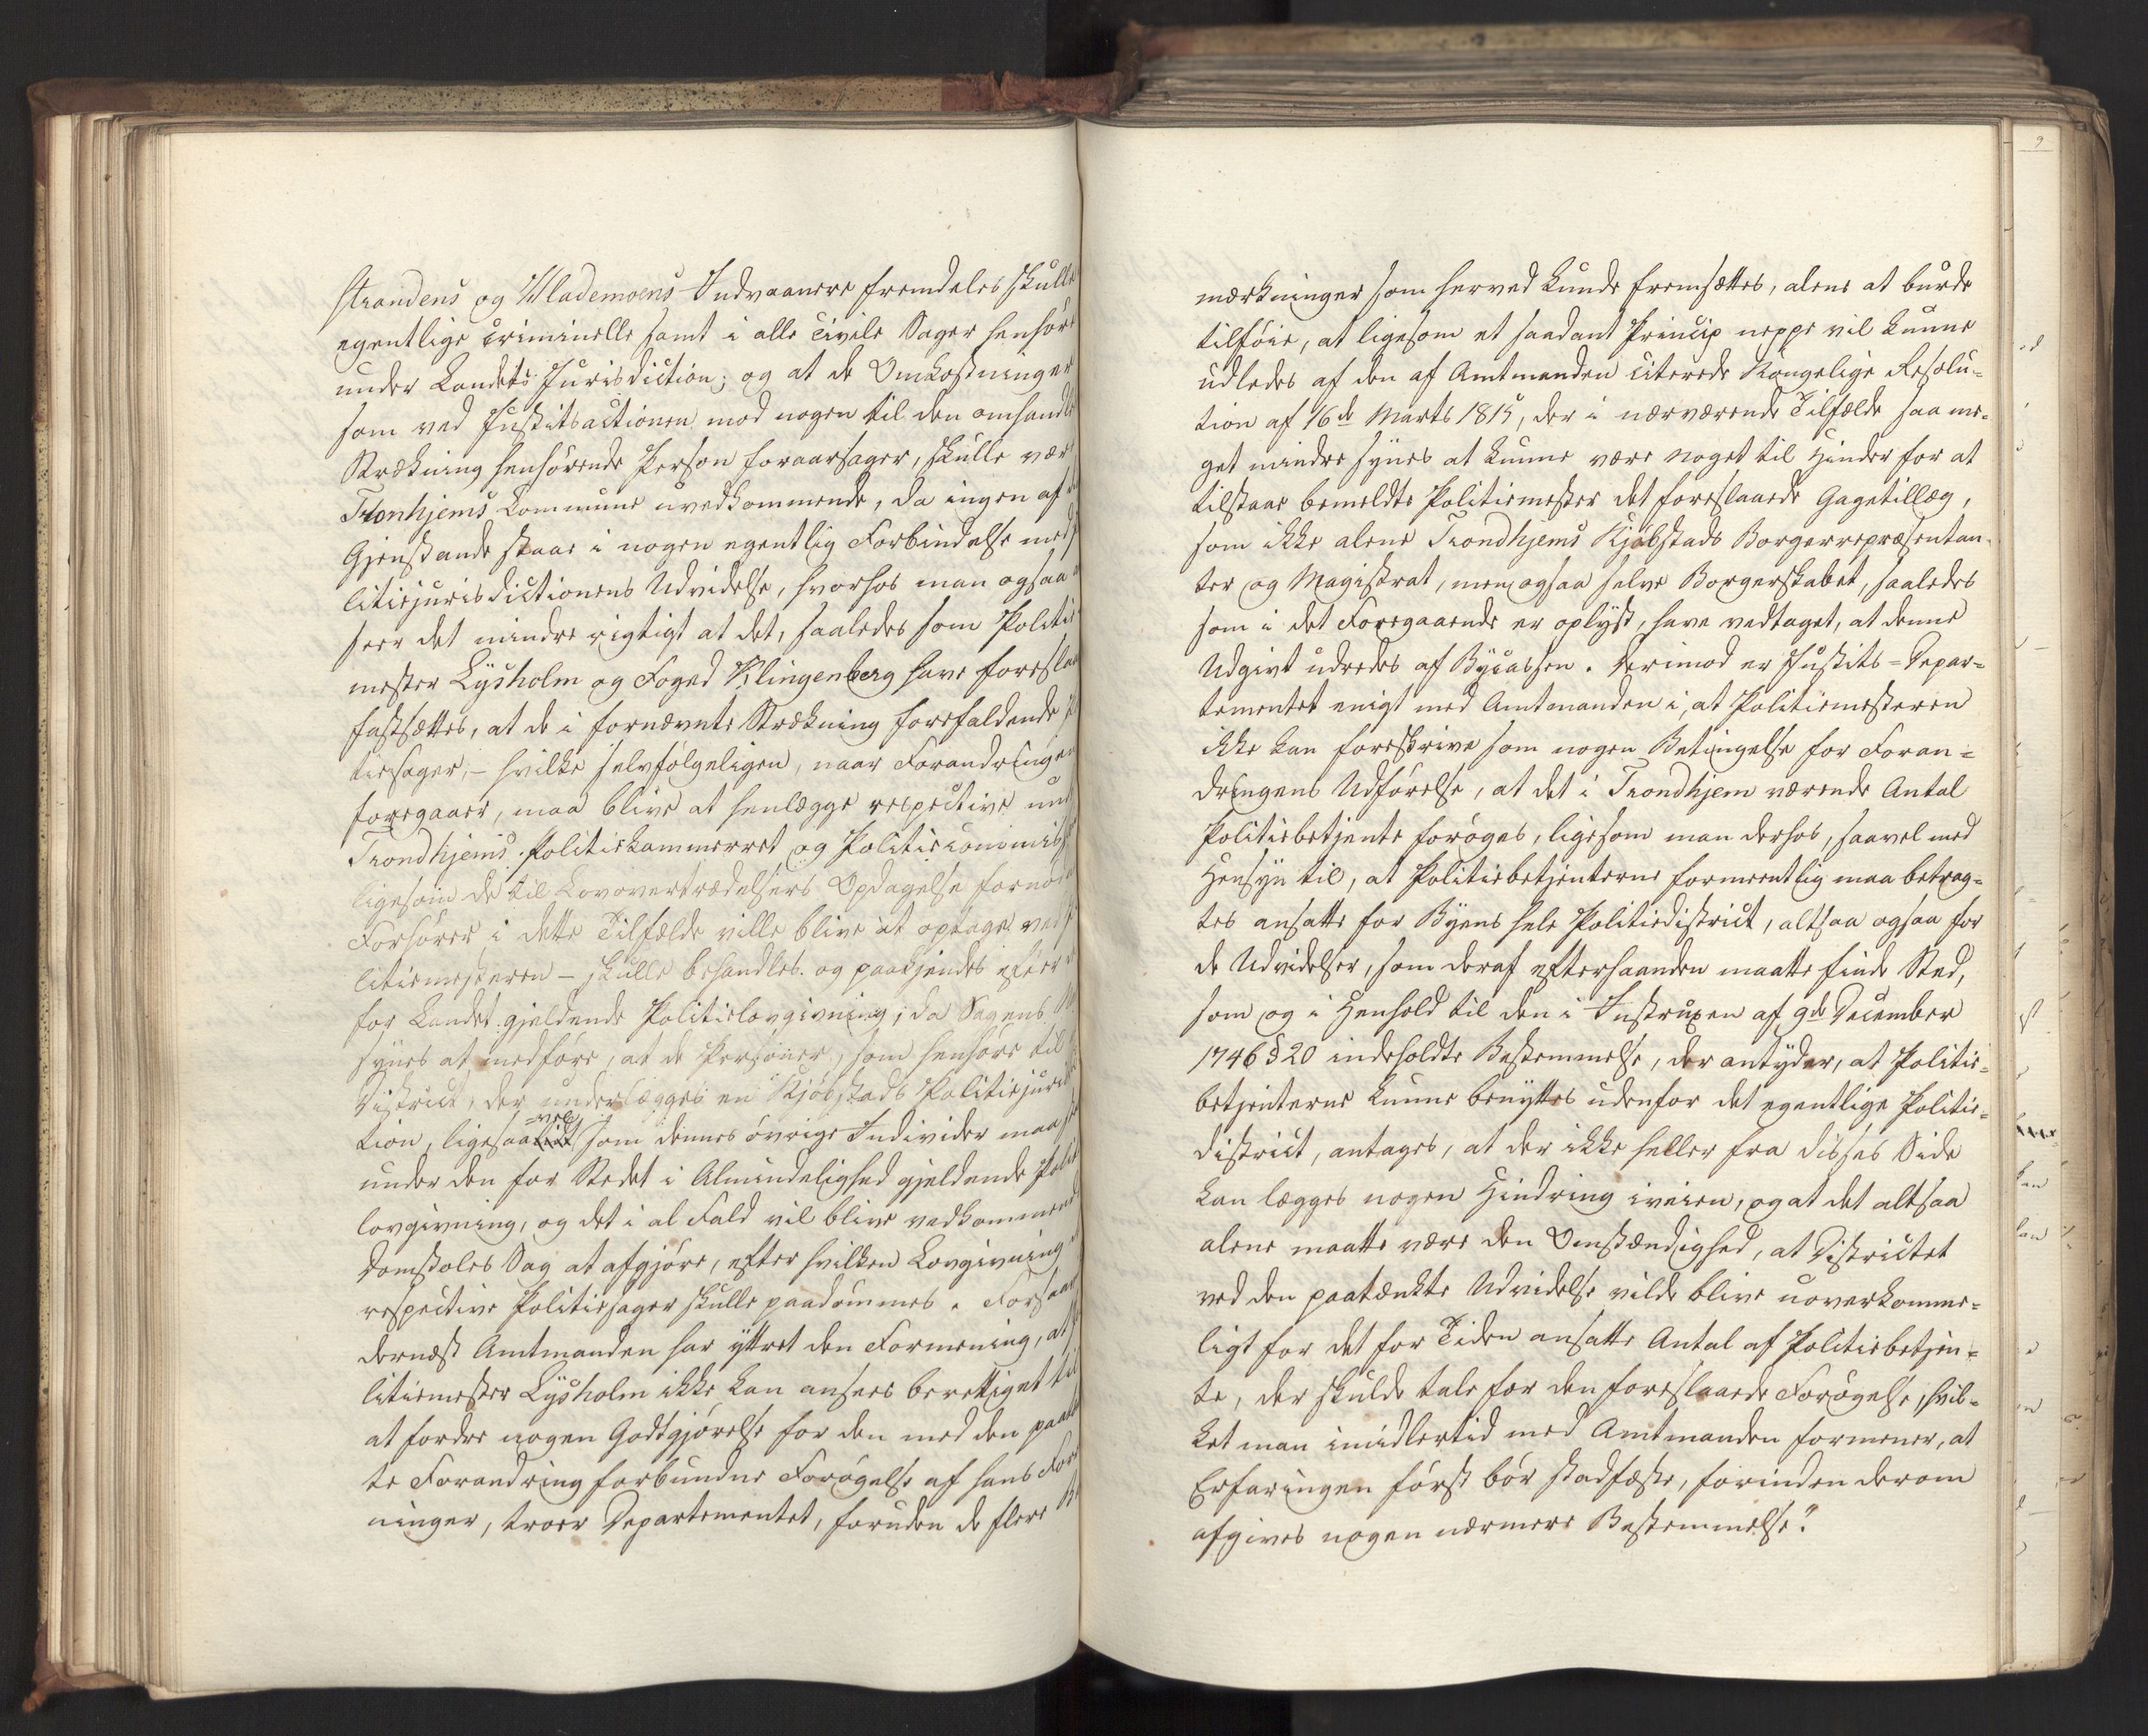 Strandens og Ihlademoens Indvaanere fremdeles skulle
egentlige criminelle samt i alle civile Sager henhøre
under Landets Jurisdiction; og at de Omkostninger
som ved Justitsactionen mod nogen til den omhandl
Strækning henhørende Person foraarsager, skulle vær
Tronhjems Commune uvedkommende, da ingen af
Gjenstande staae i nogen egentlig Forbindelse med
litiejurisdictionens Udvidelse, hvorhos man ogsaa
seer det mindre rigtigt at det, saaledes som Politie
mester Lysholm og Foged Klingenberg have foreslaa
fastsættes, at de i fornævnte Strækning forefaldende
tiesager, – hvilke selvfølgeligen, naar Forandringen
foregaaer, maa blive at henlægge respective und
Trondhjems Politiekammerret og Politiecommiss
ligesom de til Lovovertrædelsers Opdagelse fornø
Forhører i dette Tilfælde ville blive at optage ved
litiemesteren – skulle behandles og paakjendes efter
for Landet gjeldende Politielovgivning; da Sagens
synes at medføre, at de Personer, som henhøre til
District, der underlægges en Kjøbstads Politiejuris
tion, ligesaavel som dennes øvrige Individer maa
under den for Stedet i Almindelighed gjeldende Poli
lovgivning, og det i al Fald vil blive vedkommende
Domstoles Sag at afgjøre, efter hvilken Lovgivning
respective Politiesager skulle paadømmes. Forsaa
dernæst Amtmanden har yttret den Formening, at
litiemester Lysholm ikke kan ansees berettiget til
at fordre nogen Godtgjørelse for den med den paatæ
te Forandring forbundne Forøgelse af hans For
ninger, troer Departementet, foruden de flere Be
mærkninger som herved kunde fremsættes, alene at burde
tilføie, at ligesom et saadant Princip neppe vil kunne
udledes af den af Amtmanden citerede Kongelige Resolu-
tion af 16de Marts 1815, der i nærværende Tilfælde saa me-
get mindre synes at kunne være noget til Hinder for at
tilstaae bemeldte Politiemester det foreslaaede Gagetillæg,
som ikke alene Trondhjems Kjøbstads Borgerrepræsentan-
ter og Magistrat, men ogsaa selve Borgerskabet, saaledes
som i det Foregaaende er oplyst, have vedtaget, at denne
Udgivt udredes af Bycassen. Derimod er Justits-Depar-
tementet enigt med Amtmanden i, at Politiemesteren
ikke kan foreskrive som nogen Betingelse for Foran-
dringens Udførelse, at det i Trondhjem værende Antal
Politiebetjente forøges, ligesom man derhos, saavel med
Hensyn til, at Politiebetjenterne formeentlig maa betrag-
tes ansatte for Byens hele Politiedistrict, altsaa ogsaa for
de Udvidelser, som deraf efterhaanden maatte finde Sted,
som og i Henhold til den i Instruxen af 9de December
1746 § 20 indeholdte Bestemmelse, der antyder, at Politie-
betjenterne kunne benyttes udenfor det egentlige Politie-
district, antages, at der ikke heller fra disses Side
kan lægges nogen Hindring iveien, og at det altsaa
alene maatte være den Omstændighed, at Districtet
ved den paatænkte Udvidelse vilde blive uoverkomme-
ligt for det for Tiden ansatte Antal af Politiebetjen-
te, der skulde tale for den foreslaaede Forøgelse, hvil-
ket man imidlertid med Amtmanden formener, at
Erfaringen først bør stadfæste, forinden derom
afgives nogen nærmere Bestemmelse."